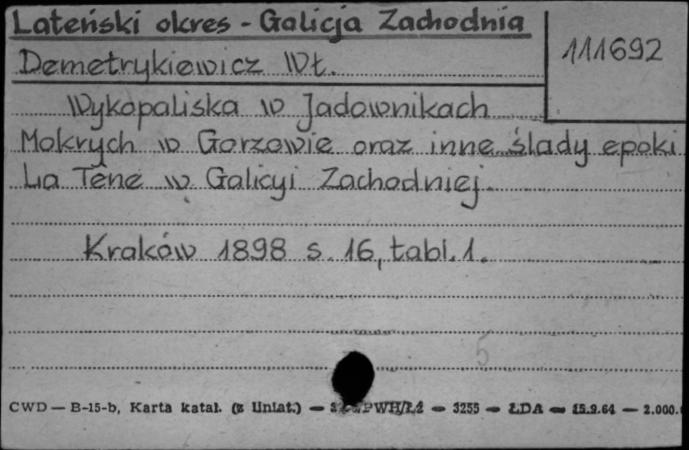 Lateński okres - Galicja Zachodnia
111692
Demetrykiewicz Wł.
Wykopaliska w Jadownikach
Mokrych w Gorzowie oraz inne ślady epoki
La Tène w Galicyi Zachodniej.
Kraków 1898 s. 16, tabl. 1.
5
CWD — B-15-b, Karta katal. (z liniat.) — PWH/Łź — 3255 — ŁDA — 15.9.64 — 2.000.